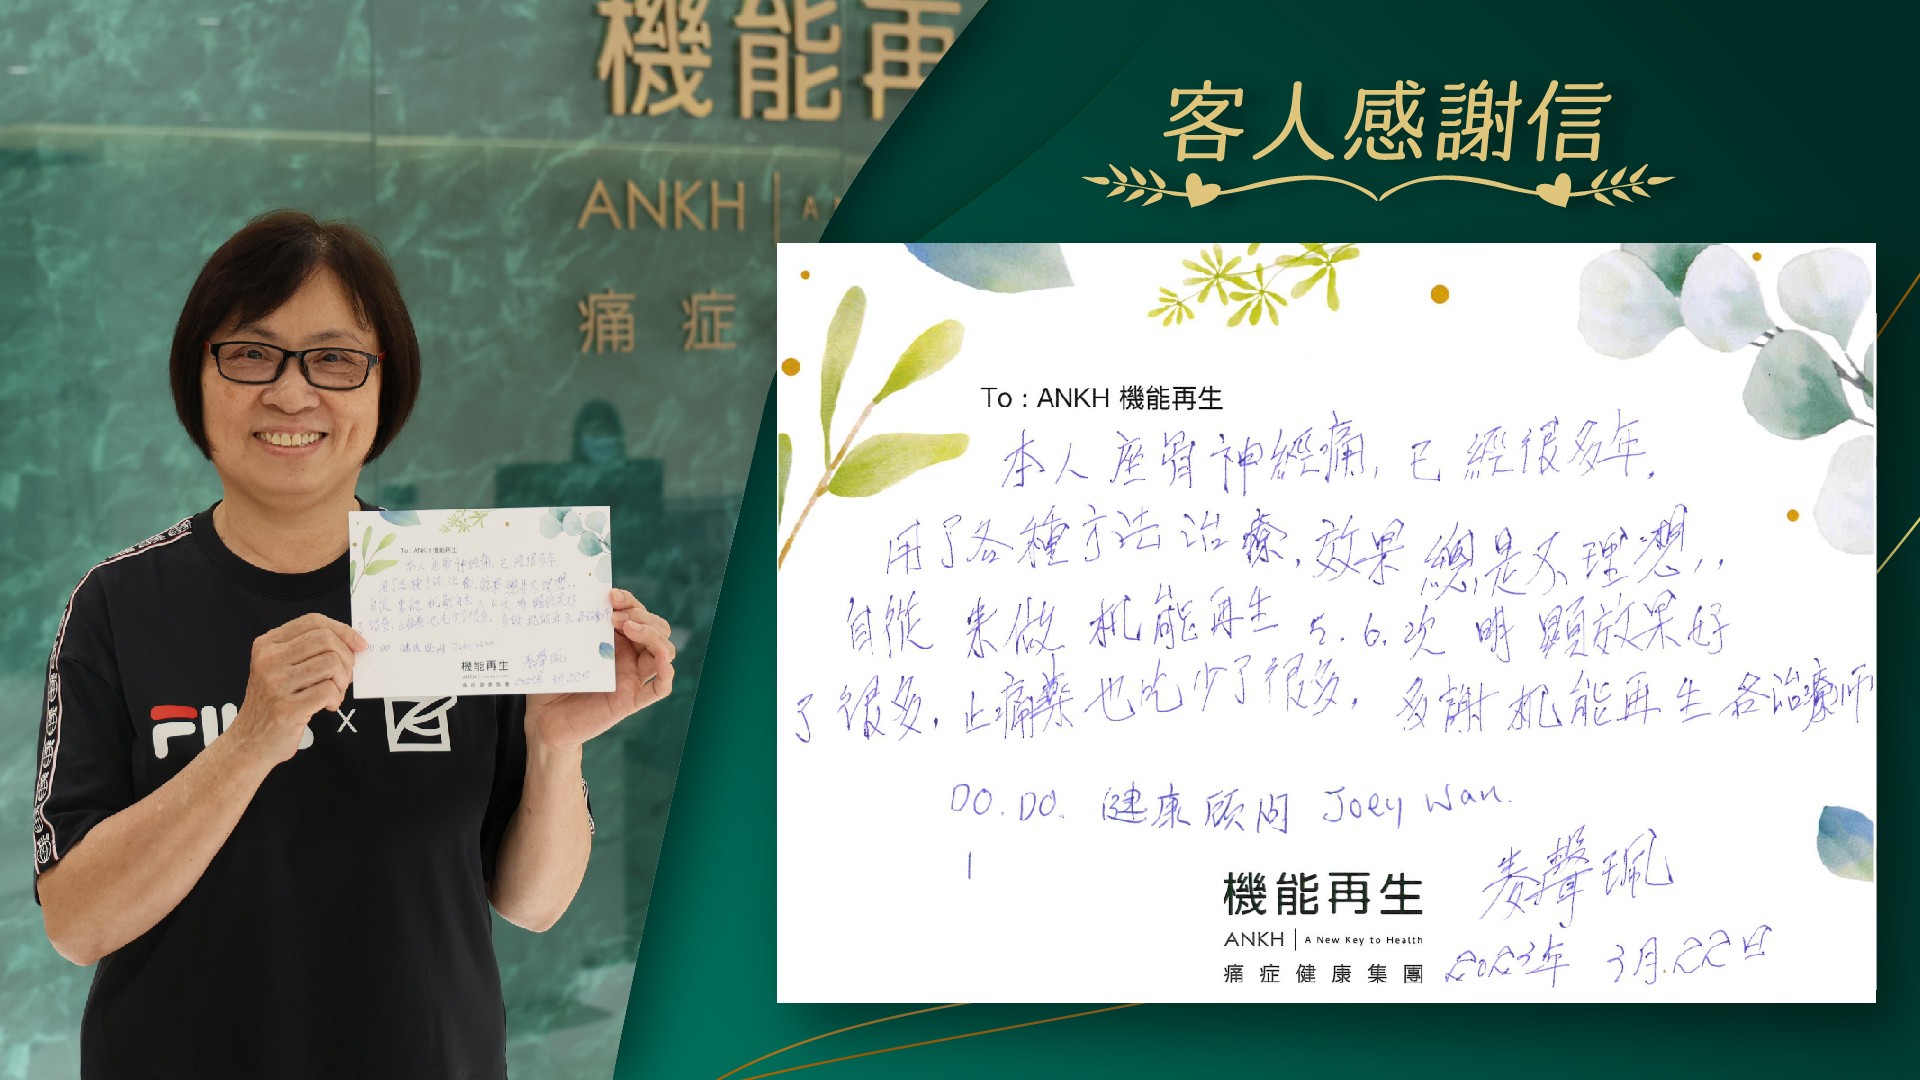 機能再
ANKH
痛症
客人感謝信
To : ANKH 機能再生
本人座骨神經痛, 已經很多年.
用了各種方法治療, 效果總是不理想,,
自從來做机能再生 5.6.次 明顯效果好
了很多, 止痛藥也吃少了很多, 多謝机能再生各治療師
DO. DO. 健康顾问 Joey Wan.
機能再生
ANKH | A New Key to Health
痛症健康集團
2023年 3月.22日
FILA
X